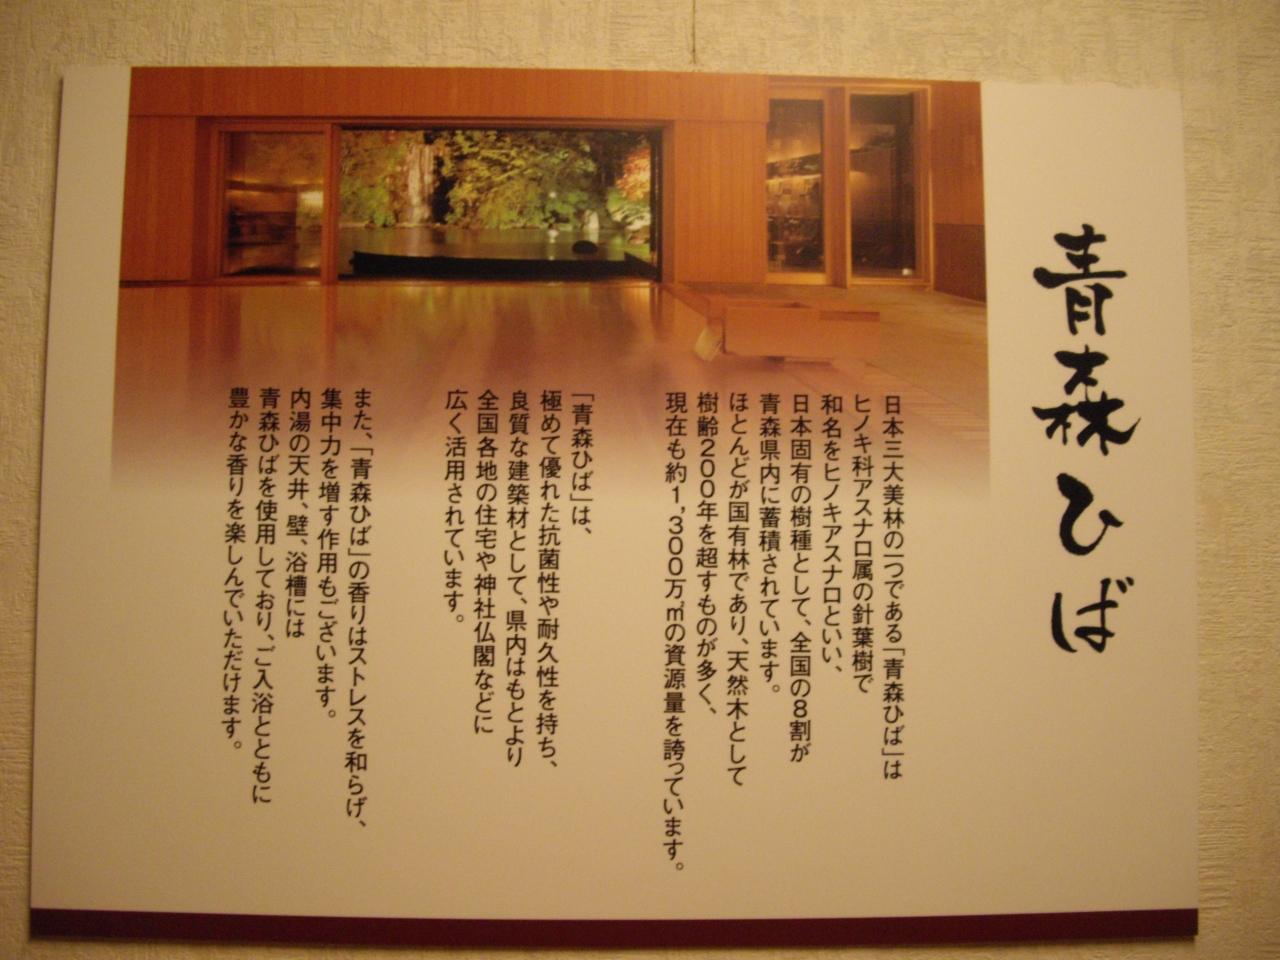 青森ひば
日本三大美林の一つである「青森ひば」は
ヒノキ科アスナロ属の針葉樹で
和名をヒノキアスナロといい、
日本固有の樹種として、全国の8割が
青森県内に蓄積されています。
ほとんどが国有林であり、天然木として
樹齢200年を超すものが多く、
現在も約1,300万㎥の資源量を誇っています。
「青森ひば」は、
極めて優れた抗菌性や耐久性を持ち、
良質な建築材として、県内はもとより
全国各地の住宅や神社仏閣などに
広く活用されています。
また、「青森ひば」の香りはストレスを和らげ、
集中力を増す作用もございます。
内湯の天井、壁、浴槽には
青森ひばを使用しており、ご入浴とともに
豊かな香りを楽しんでいただけます。